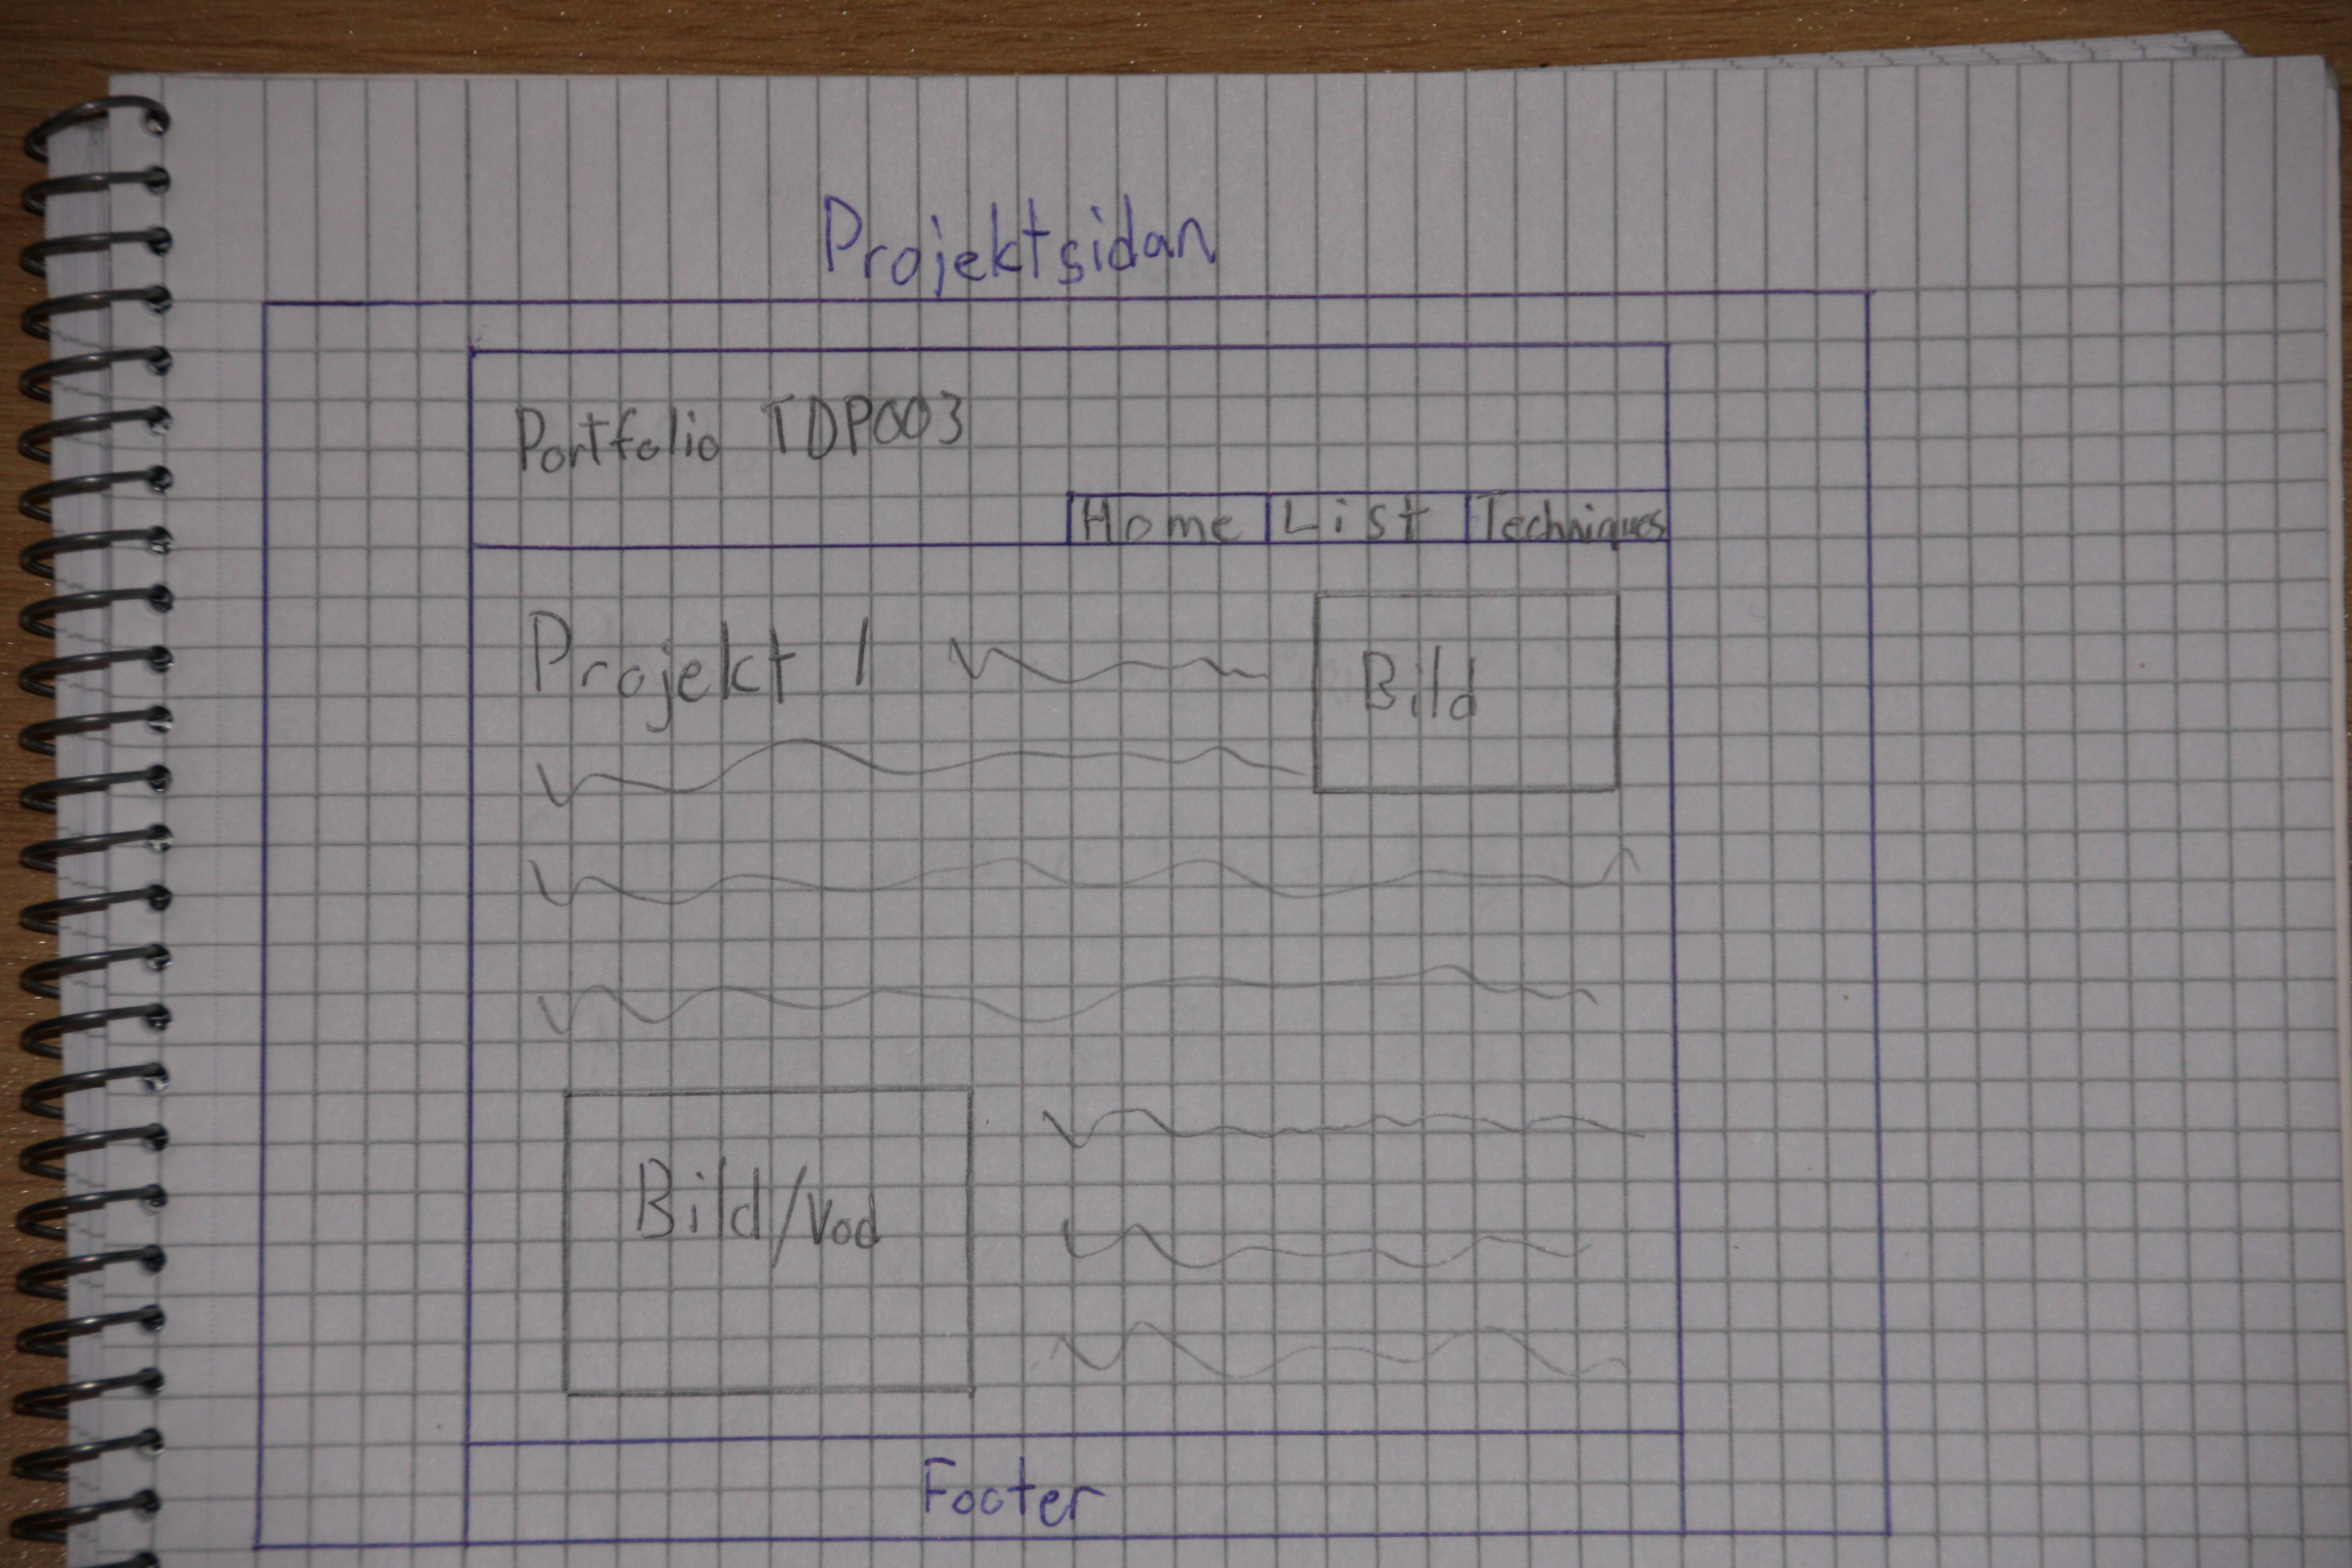 Projektsidan
Portfolio TDP003
Home List Techniques
Projekt 1
Bild
Bild/Vod
Footer